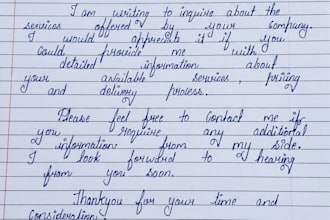 I am writing to inquire about the
services offered by your company.
I would appreciate it if you
could provide me with
detailed information about
your available services, pricing
and delivery process.
Please feel free to contact me if
you require any additional
information from my side.
I look forward to hearing
from you soon.
Thankyou for your time and
consideration.